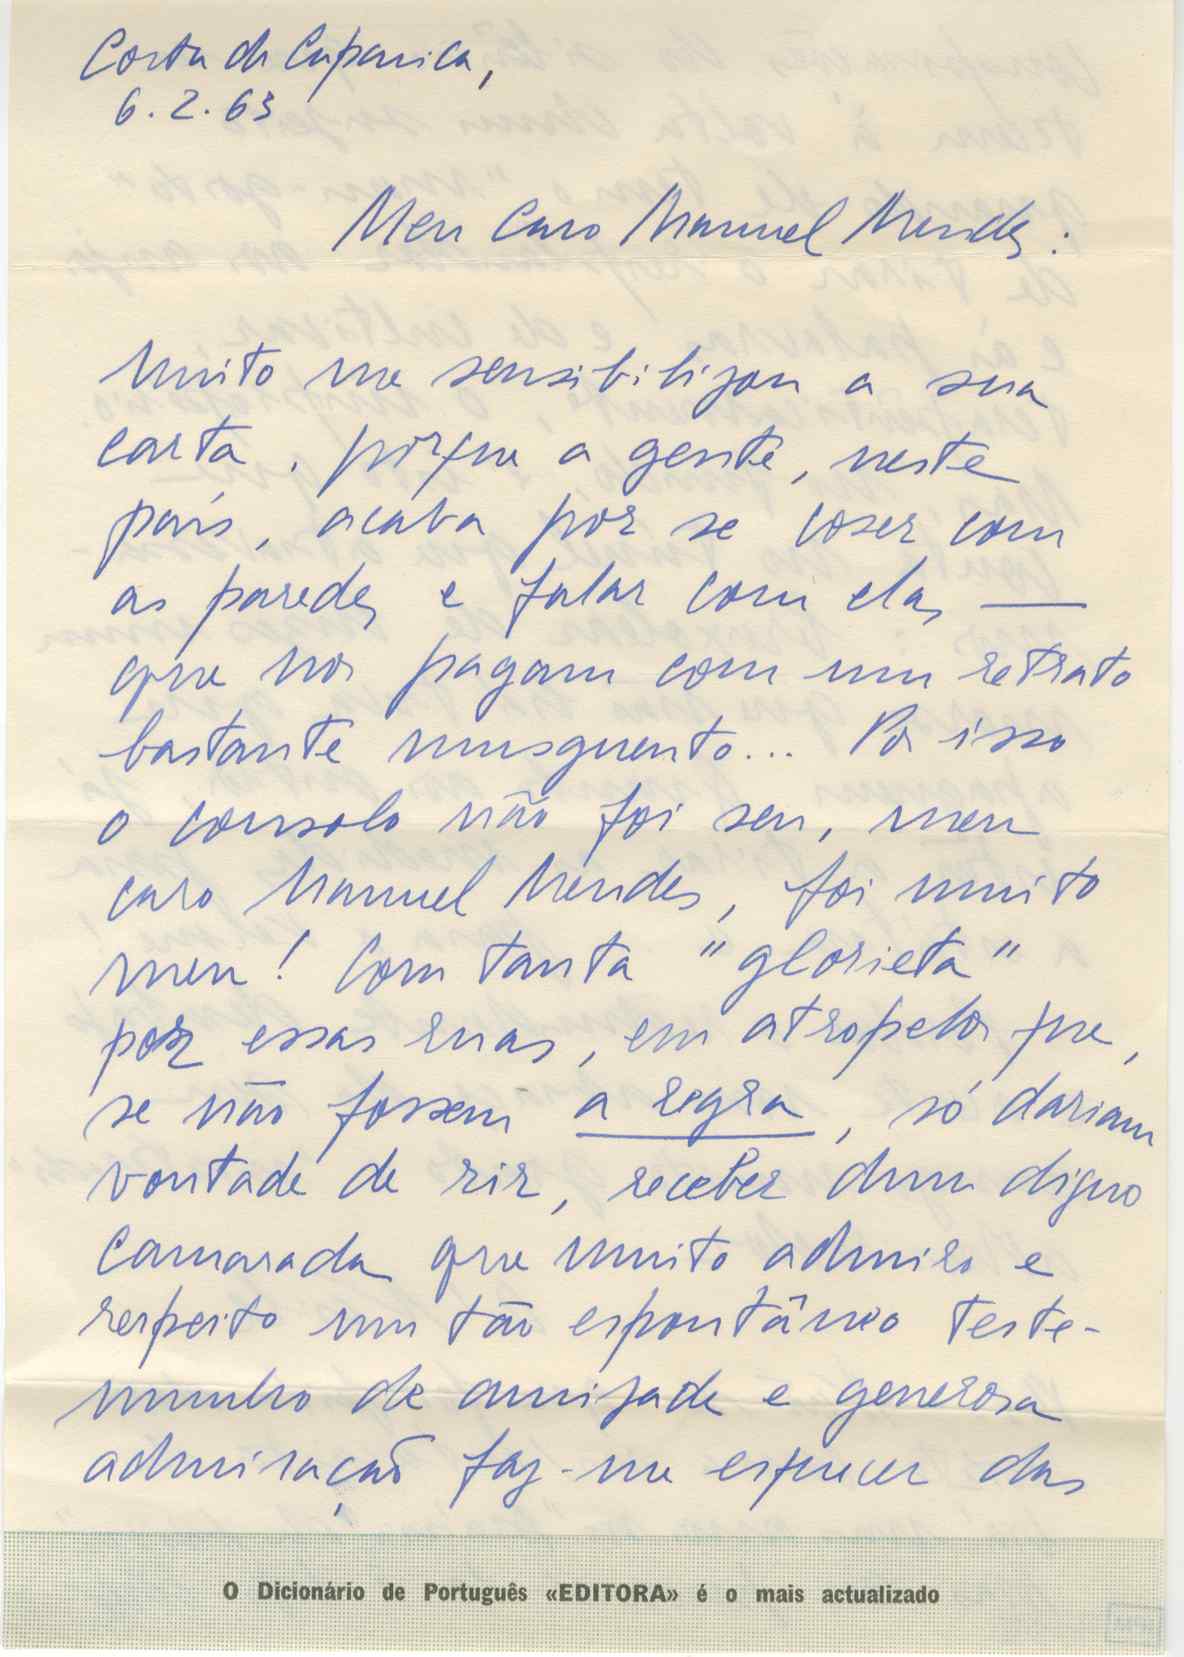 Costa da Caparica,
6.2.63
Meu Caro Manuel Mendes:
Muito me sensibilizou a sua
carta, porque a gente, neste
país, acaba por se coser com
as paredes e falar com elas —
que nos pagam com um retrato
bastante musguento... Por isso
o consolo não foi seu, meu
caro Manuel Mendes, foi muito
meu! Com tanta "glorieta"
por essas ruas, em atropelos que,
se não fossem a regra, só dariam
vontade de rir, receber dum digno
camarada que muito admiro e
respeito um tão espontâneo teste-
munho de amizade e generosa
admiração faz-me esquecer das
O Dicionário de Português «EDITORA» é o mais actualizado